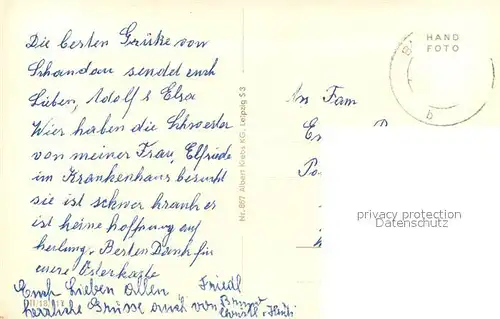 Die besten Grüße von
Schandau sendet euch
Lieben, Adolf & Elsa
Wier haben die Schwester
von meiner Frau, Elfriede
im Krankenhaus besucht
sie ist schwer krank es
ist keine hoffnung auf
heilung. Besten Dank für
eure Osterkarte
Friedl
Euch Lieben allen
herzliche Grüsse auch von
Nr. 867 Albert Krebs KG., Leipzig S 3
HAND
FOTO
b
An Fam
privacy protection
Datenschutz